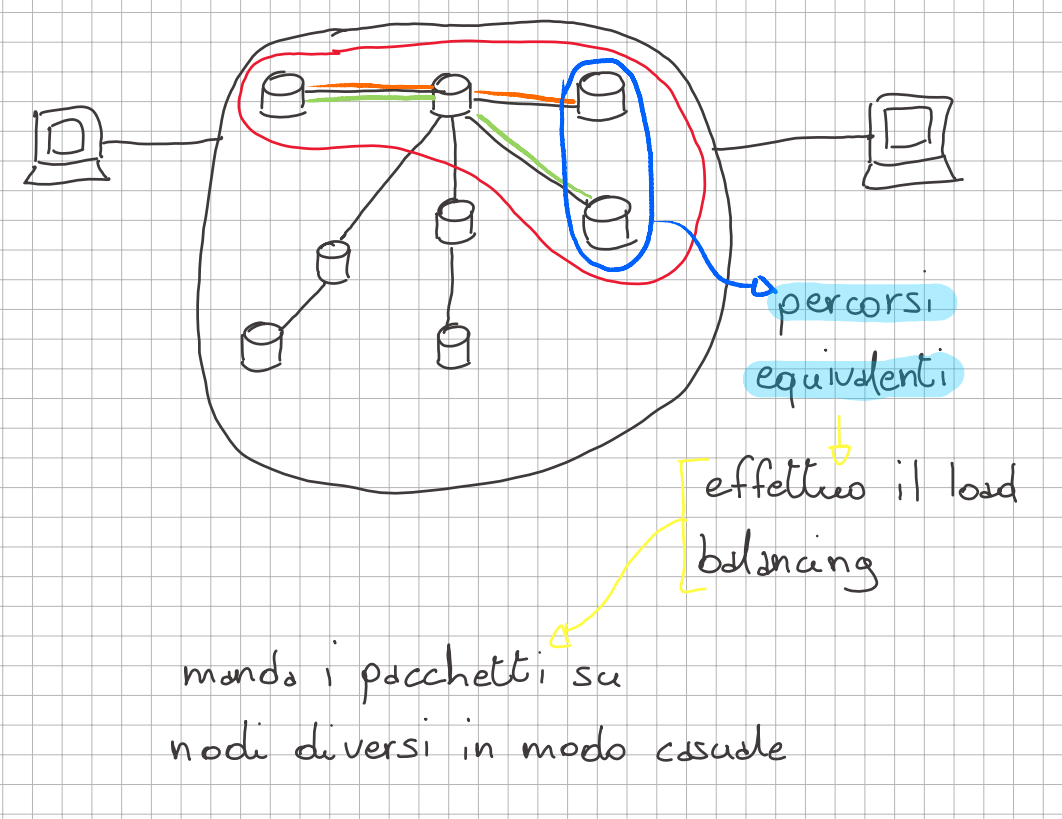 percorsi
equivalenti
effettuo il load
balancing
manda i pacchetti su
nodi diversi in modo casuale